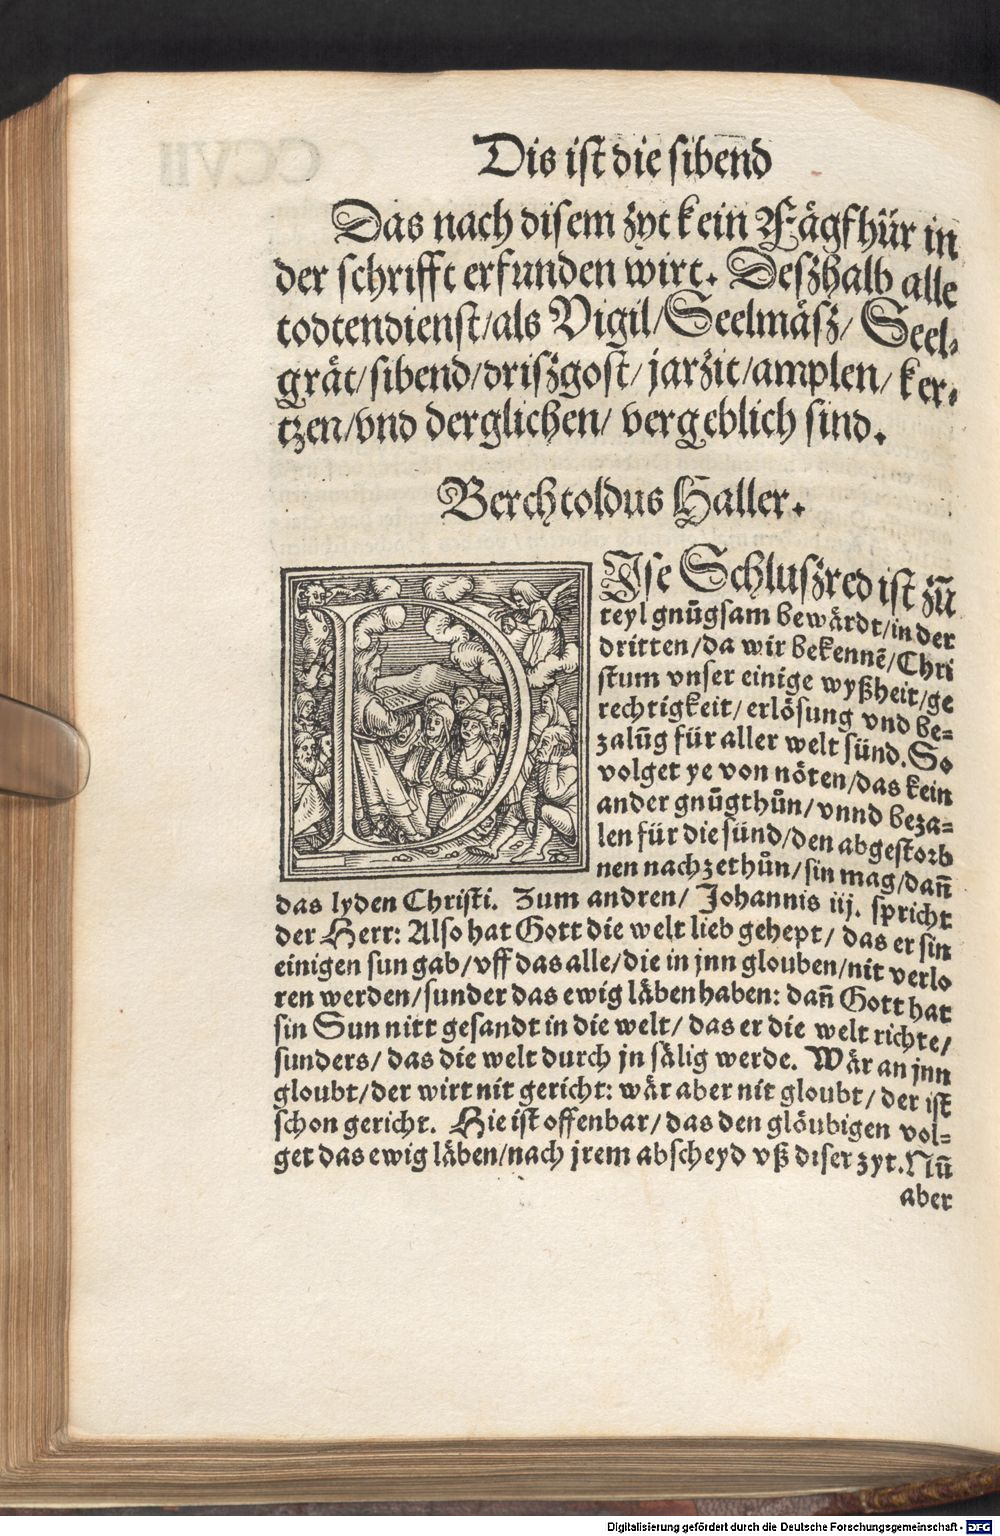 Dis ist die sibend
Das nach disem zyt kein Fägfhür in
der schrifft erfunden wirt. Deszhalb alle
todtendienst/als Vigil/Seelmäsz/Seel-
grät/sibend/driszgost/jarzit/amplen/ker-
tzen/vnd derglichen/vergeblich sind.
Berchtoldus Haller.
DIse Schluszred ist zũ
teyl gnũgsam bewärdt/in der
dritten/da wir bekennẽ/Chri
stum vnser einige wyßheit/ge
rechtigkeit/erlösung vnd be-
zalũg für aller welt sünd. So
volget ye von nöten/das kein
ander gnũgthůn/vnnd beza-
len für die sünd/den abgestorb
nen nachzethůn/sin mag/dañ
das lyden Christi. Zum andren/Johannis iij. spricht
der Herr: Also hat Gott die welt lieb gehept/das er sin
einigen sun gab/vff das alle/die in jnn glouben/nit verlo
ren werden/sunder das ewig läben haben: dañ Gott hat
sin Sun nitt gesandt in die welt/das er die welt richte/
sunders/das die welt durch jn sälig werde. Wär an jnn
gloubt/der wirt nit gericht: wär aber nit gloubt/der ist
schon gericht. Hie ist offenbar/das den glöubigen vol-
get das ewig läben/nach jrem abscheyd vß diser zyt. Nũ
aber
Digitalisierung gefördert durch die Deutsche Forschungsgemeinschaft - DFG